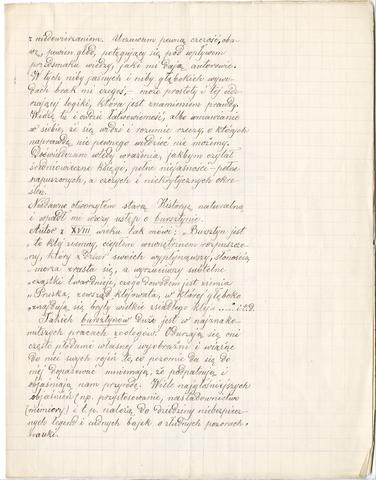 z niedowierzaniem. Uczuwam pewną czczość, oba-
wę, pewien głód, potęgujący się pod wpływem
przedsmaku wiedzy, jaki mi dają autorowie.
W tych niby jasnych i niby głębokich wywo-
dach brak mi czegoś, – może prostoty i tej ude-
rzającej logiki, która jest znamieniem prawdy.
Widzę tu i owdzie łatwowierność, albo wmawianie
w siebie, że się widzi i rozumie rzeczy, o których
naprawdę nic pewnego wiedzieć nie możemy.
Doświadczam wtedy wrażenia, jakbym czytał
średniowieczne księgi, pełne niejasności – pełne
napuszonych, a czczych i niekrytycznych okre-
śleń.
Niedawno otworzyłem starą Historję naturalną
i wpadł mi w oczy ustęp o bursztynie.
Autor z XVIII wieku tak mówi: „Bursztyn jest
to klej ziemny, ciepłem wewnętrznem rozpuszczo-
ny, który z drzew swoich wypłynąwszy, słonością
morza zrasta się, a wyrzucony subtelne
cząstki twardnieje, czego dowodem jest ziemia
Pruska, zowsząd klejowata, w której głęboko
znajdują się bryły wielkie zsiadłego kleju ..... i t.d.
Takich bursztynów dużo jest w najznako-
mitszych pracach zoologów. Odurzają się oni
często płodami własnej wyobraźni i wierząc
do niej swych rojeń to, co pozornie da się do
niej dopasować mniemają, że podpatrują i
objaśniają nam przyrodę. Wiele najgłośniejszych
objaśnień (np. przystosowanie, naśladownictwo
(mimicry) i t.p. należą do dziedziny niebezpiecz-
nych legend i cudnych bajek o złudnych pozorach
nauki.